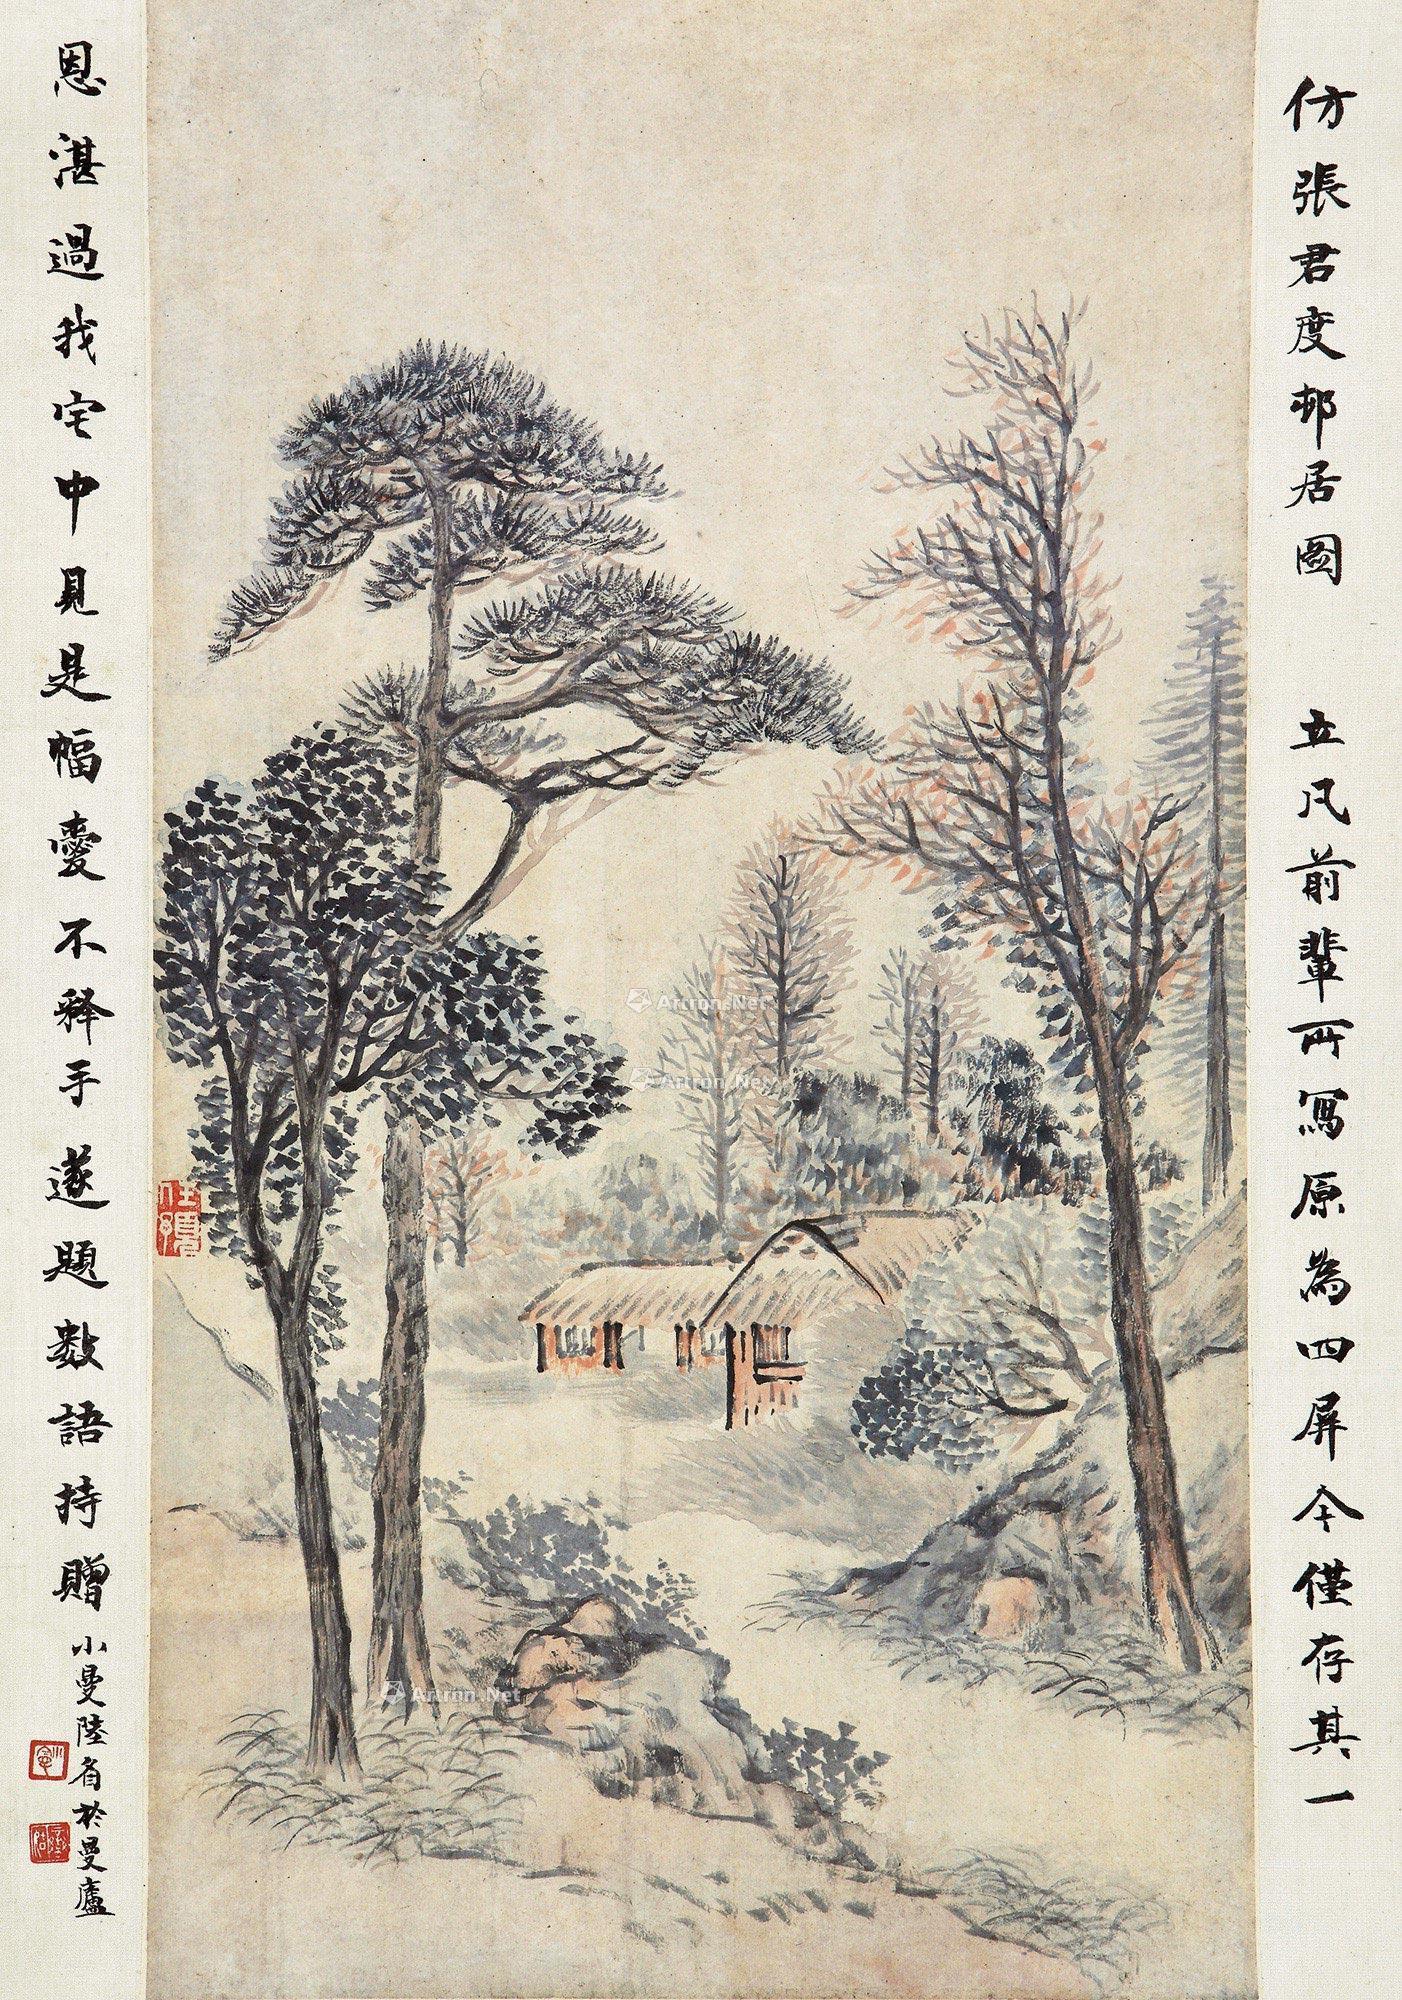 仿張君度邨居圖 立凡前輩所寫原為四屏今僅存其一
恩湛過我宅中見是幅愛不释手遂題数語持贈
小曼陸眉於曼廬
Artron.Net
Artron.Net
Artron.Net